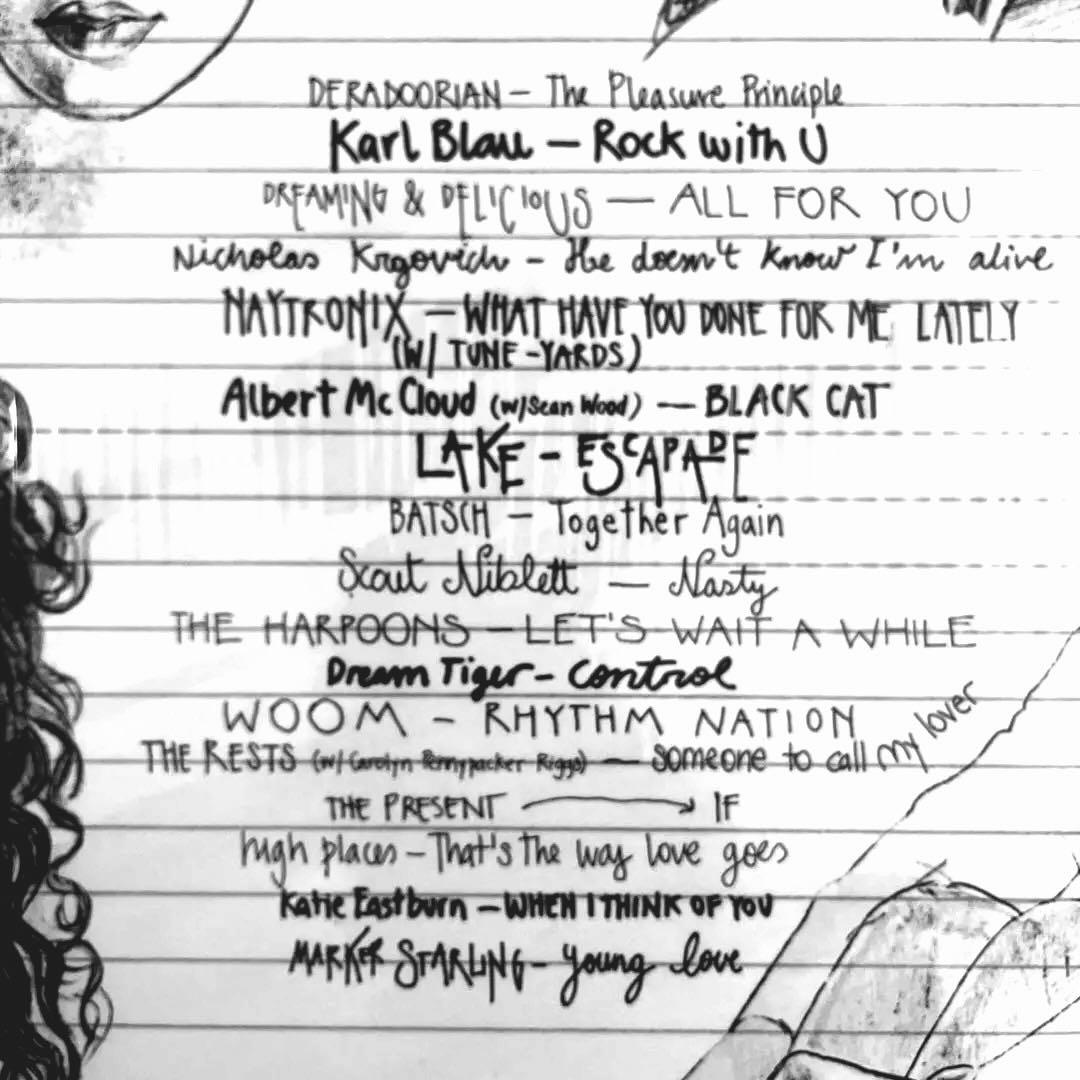 DERADOORIAN – The Pleasure Principle
Karl Blau – Rock with U
DREAMING & DELICIOUS — ALL FOR YOU
Nicholas Krgovich – He doesn't know I'm alive
NAYTRONIX – WHAT HAVE YOU DONE FOR ME LATELY
(W/ TUNE-YARDS)
Albert McCloud (w/Sean Wood) — BLACK CAT
LAKE – ESCAPADE
BATSCH – Together Again
Scout Niblett — Nasty
THE HARPOONS – LET'S WAIT A WHILE
Dream Tiger – Control
WOOM – RHYTHM NATION
THE RESTS (w/ Carolyn Pennypacker Riggs) — someone to call my lover
THE PRESENT → IF
high places – That's the way love goes
Katie Eastburn – WHEN I THINK OF YOU
MARKER STARLING – young love